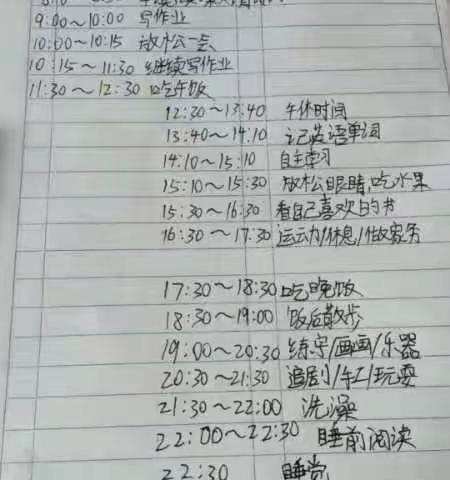 9:00~10:00 写作业
10:00~10:15 放松一会
10:15~11:30 继续写作业
11:30~12:30 吃午饭
12:30~13:40 午休时间
13:40~14:10 记英语单词
14:10~15:10 自主学习
15:10~15:30 放松眼睛,吃水果
15:30~16:30 看自己喜欢的书
16:30~17:30 运动/休息/做家务
17:30~18:30 吃晚饭
18:30~19:00 饭后散步
19:00~20:30 练字/画画/乐器
20:30~21:30 追剧/手工/玩耍
21:30~22:00 洗澡
22:00~22:30 睡前阅读
22:30 睡觉